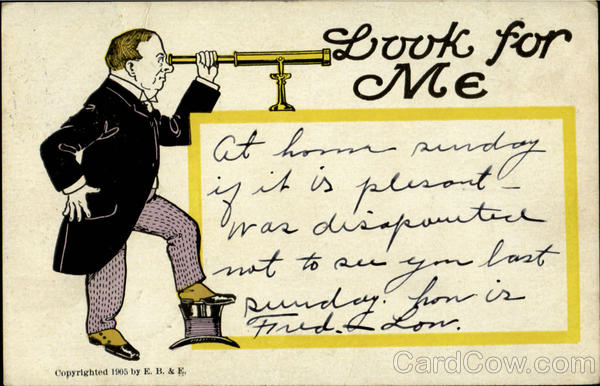 Look for
Me
At home sunday
if it is plesant –
was disapointed
not to see you last
sunday. how is
Fred. & Low.
Copyrighted 1905 by E. B. & E.
CardCow.com